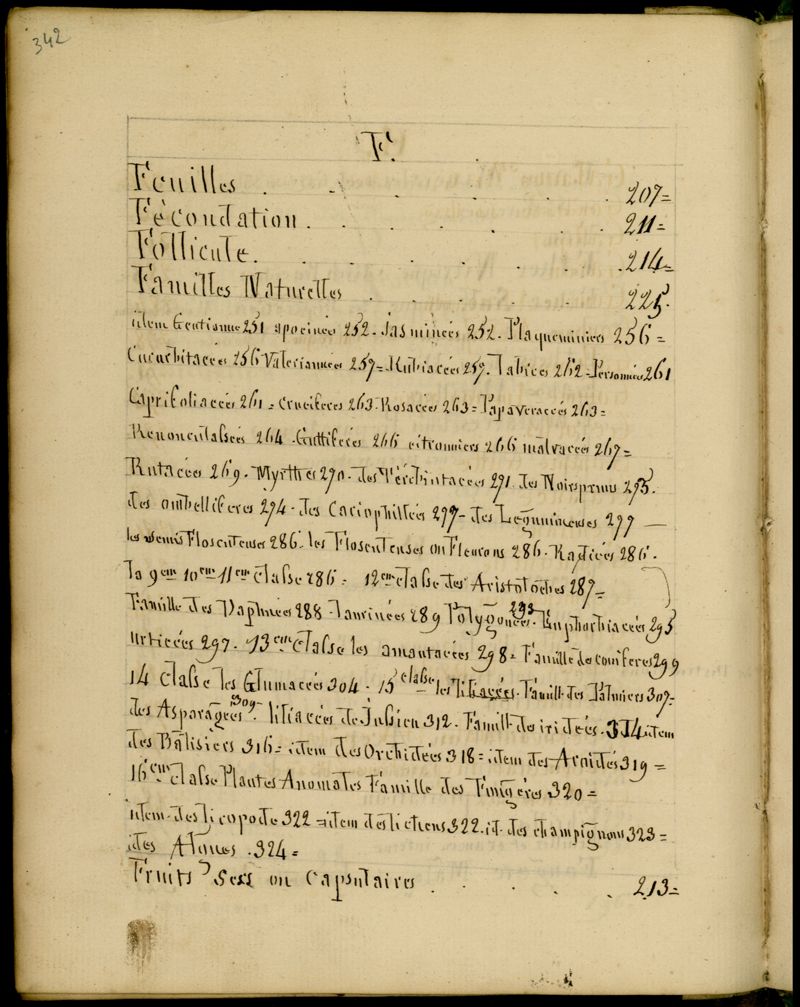 342
F.
Feuilles . . . . . 207=
Fécondation . . . . . . 211=
Follicule. . . . . . 214=
Familles Naturelles . . . . 225.
idem Gentianne 251 apocinées 252. Jasminées 252. Plaqueminiers 256=
Cucurbitacées 256 Valeriannées 257= Rubiacées 257. Labiées 262. Personnées 261
Caprifoliacées 261 = Cruciferes 263. Rosacées 263= Papaveracées 263=
Renonculassées 264. Guttiferes 266 citronniers 266 malvacées 267=
Rutacées 269. Myrthes 270. des Térébintacées 271. des Noirspruns 273.
des ombelliferes 274. des Cariophillées 277. des Legumineuses 277 —
les semi Flosculeuses 286. les Flosculeuses ou Fleurons 286. Radiées 286.
la 9eme 10eme 11eme Classe 286. 12eme classe des Aristoloches 287=
Famille des Daphnées 288. laurinées 289 Polygonées 293. Euphorbiacées 295
Urticées 297. 13eme Classe les amantacées 298. Famille des coniferes 299
14 Classe les Glumacées 304. 15 classe les liliacées. Famill. des Palmiers 307.
des Asparagées 309. liliacées de Jussieu 312. Famill. des iridées. 314 idem
des Balisiers 316. idem des Orchidées 318= idem des Aroidés 319=
16eme Classe Plantes Anomales Famille des Fougéres 320=
idem des licopode 322 = idem des lichens 322. id. des champignons 323=
des Algues. 324=
Fruits Secs ou Capsulaires . . . . 213=